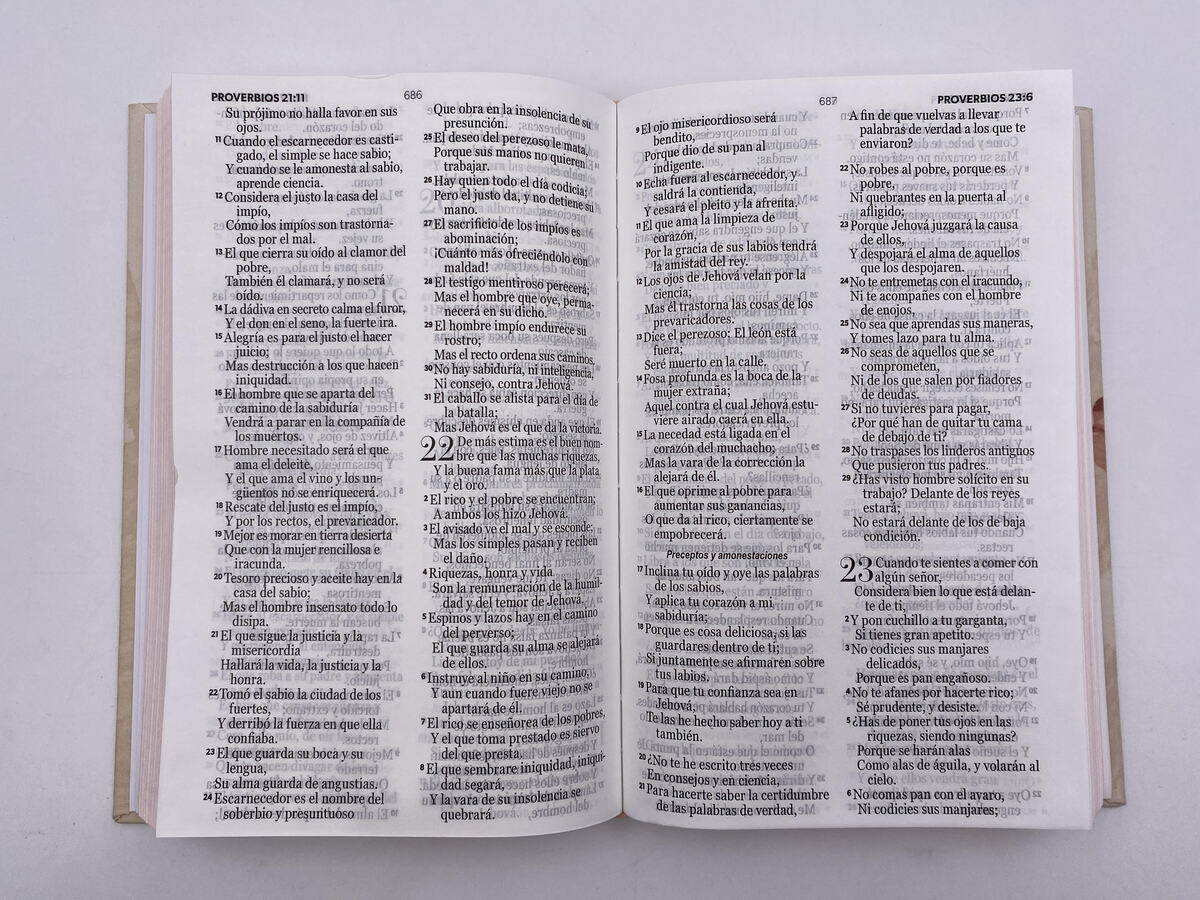 PROVERBIOS 21:11
686
Su prójimo no halla favor en sus
ojos.
11 Cuando el escarnecedor es casti-
gado, el simple se hace sabio;
Y cuando se le amonesta al sabio,
aprende ciencia.
12 Considera el justo la casa del
impío,
Cómo los impíos son trastorna-
dos por el mal.
13 El que cierra su oído al clamor del
pobre,
También él clamará, y no será
oído.
14 La dádiva en secreto calma el furor,
Y el don en el seno, la fuerte ira.
15 Alegría es para el justo el hacer
juicio;
Mas destrucción a los que hacen
iniquidad.
16 El hombre que se aparta del
camino de la sabiduría
Vendrá a parar en la compañía de
los muertos.
17 Hombre necesitado será el que
ama el deleite,
Y el que ama el vino y los un-
güentos no se enriquecerá.
18 Rescate del justo es el impío,
Y por los rectos, el prevaricador.
19 Mejor es morar en tierra desierta
Que con la mujer rencillosa e
iracunda.
20 Tesoro precioso y aceite hay en la
casa del sabio;
Mas el hombre insensato todo lo
disipa.
21 El que sigue la justicia y la
misericordia
Hallará la vida, la justicia y la
honra.
22 Tomó el sabio la ciudad de los
fuertes,
Y derribó la fuerza en que ella
confiaba.
23 El que guarda su boca y su
lengua,
Su alma guarda de angustias.
24 Escarnecedor es el nombre del
soberbio y presuntuoso
Que obra en la insolencia de su
presunción.
25 El deseo del perezoso le mata,
Porque sus manos no quieren
trabajar.
26 Hay quien todo el día codicia;
Pero el justo da, y no detiene su
mano.
27 El sacrificio de los impíos es
abominación;
¡Cuánto más ofreciéndolo con
maldad!
28 El testigo mentiroso perecerá;
Mas el hombre que oye, perma-
necerá en su dicho.
29 El hombre impío endurece su
rostro;
Mas el recto ordena sus caminos.
30 No hay sabiduría, ni inteligencia,
Ni consejo, contra Jehová.
31 El caballo se alista para el día de
la batalla;
Mas Jehová es el que da la victoria.
22 De más estima es el buen nom-
bre que las muchas riquezas,
Y la buena fama más que la plata
y el oro.
2 El rico y el pobre se encuentran;
A ambos los hizo Jehová.
3 El avisado ve el mal y se esconde;
Mas los simples pasan y reciben
el daño.
4 Riquezas, honra y vida
Son la remuneración de la humil-
dad y del temor de Jehová.
5 Espinos y lazos hay en el camino
del perverso;
El que guarda su alma se alejará
de ellos.
6 Instruye al niño en su camino,
Y aun cuando fuere viejo no se
apartará de él.
7 El rico se enseñorea de los pobres,
Y el que toma prestado es siervo
del que presta.
8 El que sembrare iniquidad, iniqui-
dad segará,
Y la vara de su insolencia se
quebrará.
687
PROVERBIOS 23:6
9 El ojo misericordioso será
bendito,
Porque dio de su pan al
indigente.
10 Echa fuera al escarnecedor, y
saldrá la contienda,
Y cesará el pleito y la afrenta.
11 El que ama la limpieza de
corazón,
Por la gracia de sus labios tendrá
la amistad del rey.
12 Los ojos de Jehová velan por la
ciencia;
Mas él trastorna las cosas de los
prevaricadores.
13 Dice el perezoso: El león está
fuera;
Seré muerto en la calle.
14 Fosa profunda es la boca de la
mujer extraña;
Aquel contra el cual Jehová estu-
viere airado caerá en ella.
15 La necedad está ligada en el
corazón del muchacho;
Mas la vara de la corrección la
alejará de él.
16 El que oprime al pobre para
aumentar sus ganancias,
O que da al rico, ciertamente se
empobrecerá.
Preceptos y amonestaciones
17 Inclina tu oído y oye las palabras
de los sabios,
Y aplica tu corazón a mi
sabiduría;
18 Porque es cosa deliciosa, si las
guardares dentro de ti;
Si juntamente se afirmaren sobre
tus labios.
19 Para que tu confianza sea en
Jehová,
Te las he hecho saber hoy a ti
también.
20 ¿No te he escrito tres veces
En consejos y en ciencia,
21 Para hacerte saber la certidumbre
de las palabras de verdad,
A fin de que vuelvas a llevar
palabras de verdad a los que te
enviaron?
22 No robes al pobre, porque es
pobre,
Ni quebrantes en la puerta al
afligido;
23 Porque Jehová juzgará la causa
de ellos,
Y despojará el alma de aquellos
que los despojaren.
24 No te entremetas con el iracundo,
Ni te acompañes con el hombre
de enojos,
25 No sea que aprendas sus maneras,
Y tomes lazo para tu alma.
26 No seas de aquellos que se
comprometen,
Ni de los que salen por fiadores
de deudas.
27 Si no tuvieres para pagar,
¿Por qué han de quitar tu cama
de debajo de ti?
28 No traspases los linderos antiguos
Que pusieron tus padres.
29 ¿Has visto hombre solícito en su
trabajo? Delante de los reyes
estará;
No estará delante de los de baja
condición.
23 Cuando te sientes a comer con
algún señor,
Considera bien lo que está delan-
te de ti,
2 Y pon cuchillo a tu garganta,
Si tienes gran apetito.
3 No codicies sus manjares
delicados,
Porque es pan engañoso.
4 No te afanes por hacerte rico;
Sé prudente, y desiste.
5 ¿Has de poner tus ojos en las
riquezas, siendo ningunas?
Porque se harán alas
Como alas de águila, y volarán al
cielo.
6 No comas pan con el avaro,
Ni codicies sus manjares;